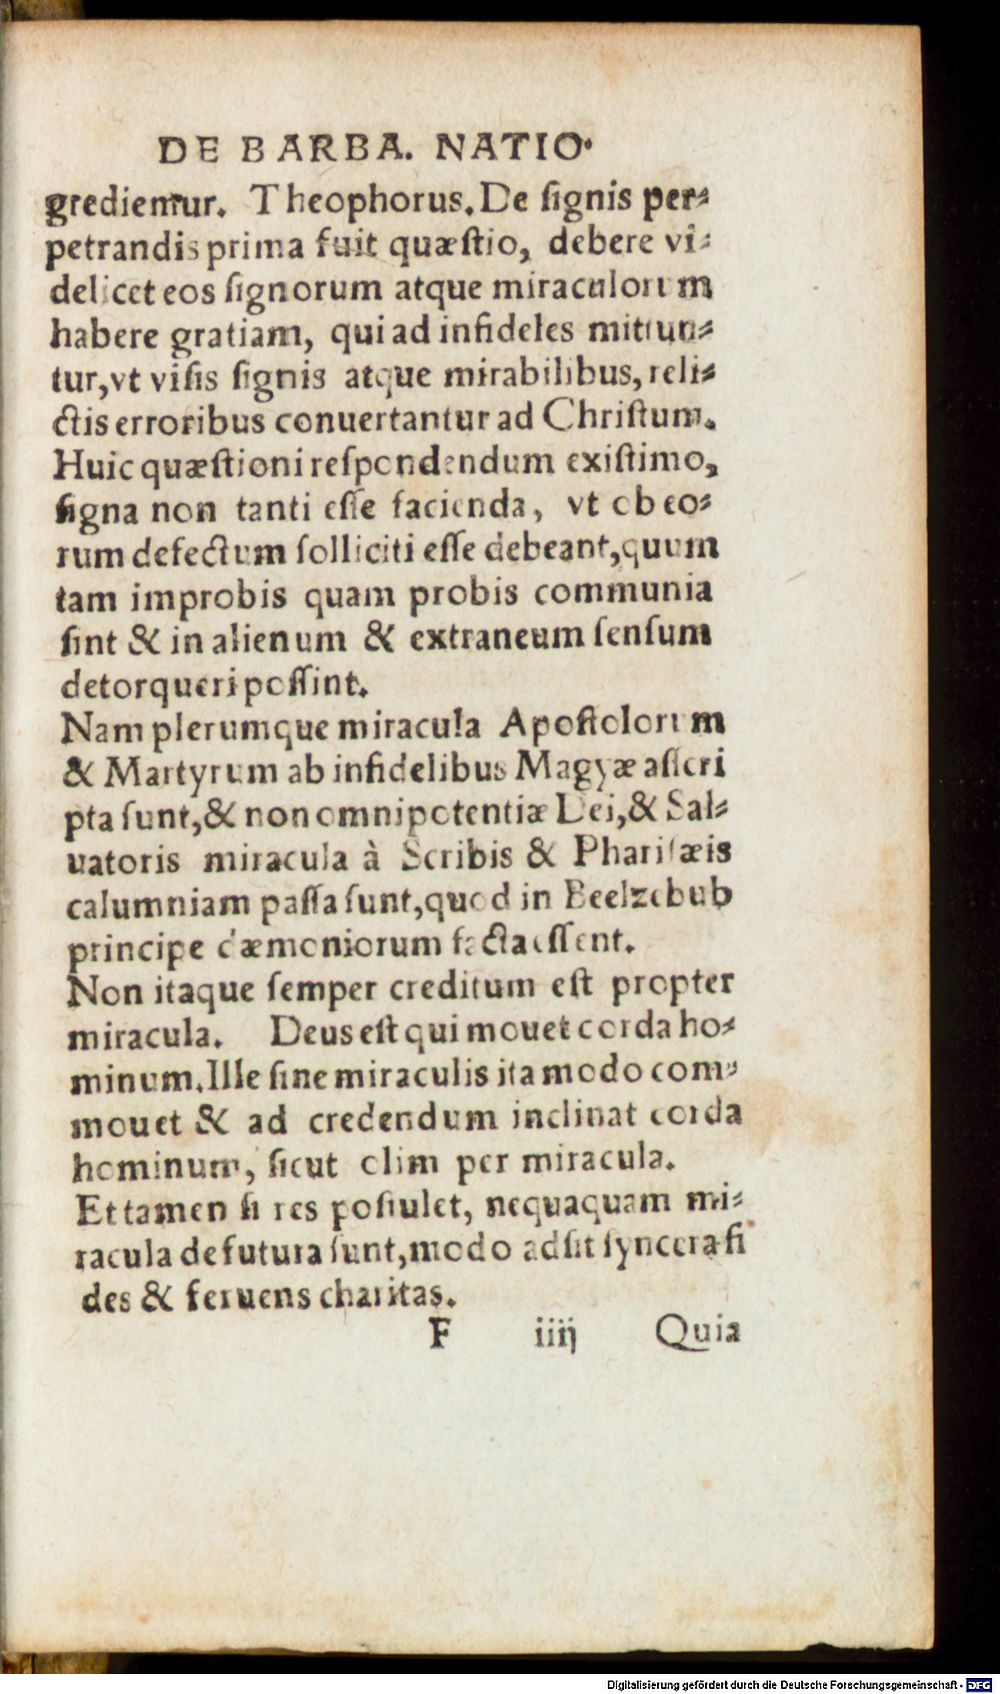 DE BARBA. NATIO.
gredientur. Theophorus. De ſignis per-
petrandis prima fuit quæſtio, debere vi-
delicet eos ſignorum atque miraculorum
habere gratiam, qui ad infideles mittun-
tur, vt viſis ſignis atque mirabilibus, reli-
ctis erroribus conuertantur ad Chriſtum.
Huic quæſtioni reſpondendum exiſtimo,
ſigna non tanti eſſe facienda, vt ob eo-
rum defectum ſolliciti eſſe debeant, quum
tam improbis quam probis communia
ſint & in alienum & extraneum ſenſum
detorqueri poſſint.
Nam plerumque miracula Apoſtolorum
& Martyrum ab infidelibus Magyæ aſſcri
pta ſunt, & non omnipotentiæ Dei, & Sal-
uatoris miracula à Scribis & Phariſæis
calumniam paſſa ſunt, quod in Beelzebub
principe dæmoniorum facta eſſent.
Non itaque ſemper creditum eſt propter
miracula. Deus eſt qui mouet corda ho-
minum. Ille ſine miraculis ita modo com-
mouet & ad credendum inclinat corda
hominum, ſicut olim per miracula.
Et tamen ſi res poſtulet, nequaquam mi-
racula defutura ſunt, modo adſit ſyncera fi
des & feruens charitas.
F iiij Quia
Digitalisierung gefördert durch die Deutsche Forschungsgemeinschaft - DFG